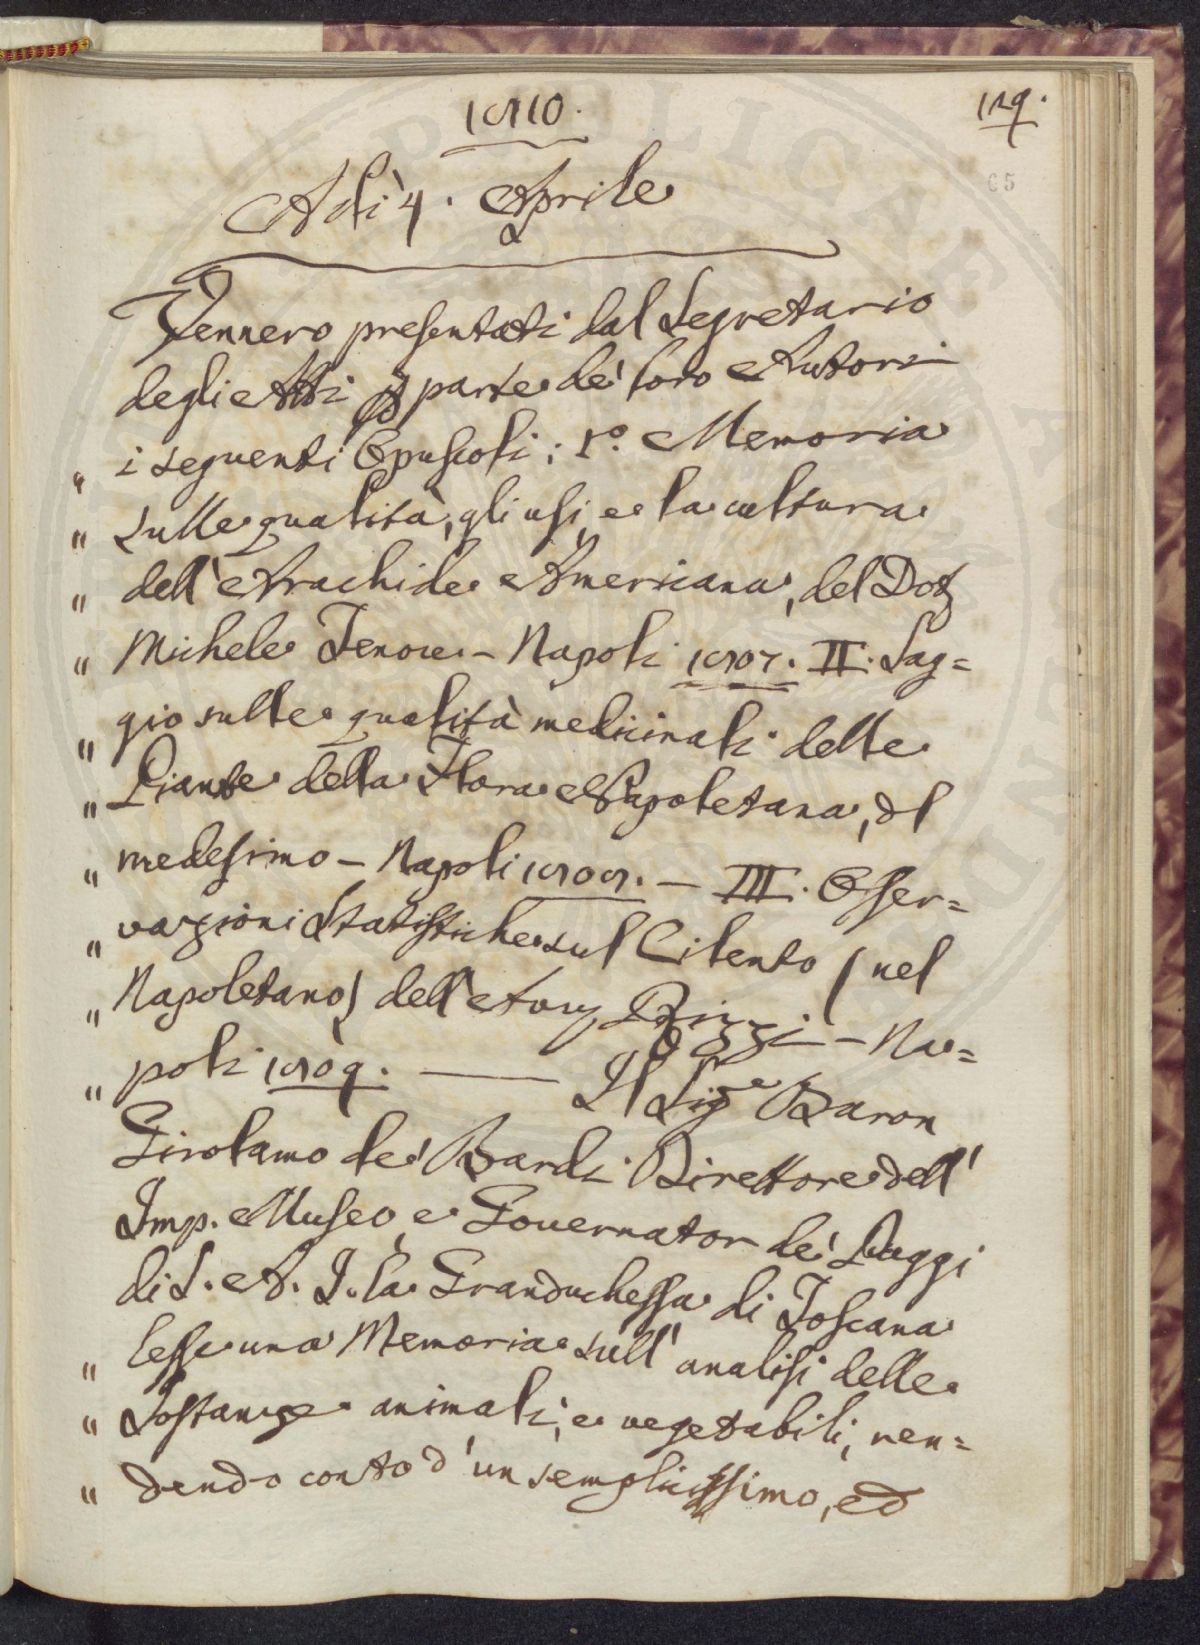 1810.
129.
65
Adì 4. Aprile
Vennero presentati dal Segretario
degli Atti p parte de' loro Autori
„ i seguenti Opuscoli: 1.° Memoria
„ sulle qualità, gli usi, e la cultura
„ dell'Arachide Americana, del Dott
„ Michele Tenore - Napoli 1807. II. Sag=
„ gio sulle qualità medicinali delle
„ Piante della Flora Napoletana, dl
„ medesimo - Napoli 1808. - III. Osser=
„ vazioni Statistiche sul Cilento (nel
„ Napoletano) dell'Avv Rizzi - Na=
„ poli 1809. — Il Sig.e Baron
Girolamo de' Bardi Direttore dell'
Imp. Museo, e Governator de' Paggi
di S. A. I. la Granduchessa di Toscana
„ lesse una Memoria sull'analisi delle
„ Sostanze animali, e vegetabili, ren=
„ dendo conto d'un semplicissimo, ed